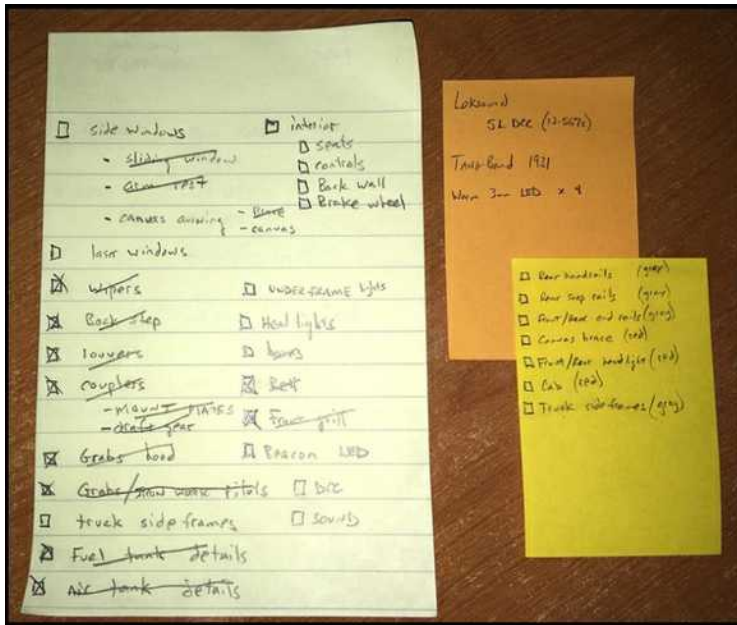 side windows
- sliding window
- arm rest
- canvas awning - brace
- canvas
laser windows
wipers
Back step
louvers
couplers
- MOUNT PLATES
- draft gear
Grabs hood
Grabs/ pilots
truck side frames
Fuel tank details
Air tank details
interior
seats
controls
Back wall
Brake wheel
UNDERFRAME lights
Head lights
horns
Bell
Front grill
Beacon LED
DCC
SOUND
Loksound
5L DCC
Tang Band 1931
Warm 3mm LED x 4
Rear handrails (gray)
Rear step rails (gray)
Front/Rear end rails (gray)
Canvas brace (red)
Front/Rear headlight (red)
Cab (red)
Truck sideframes (gray)